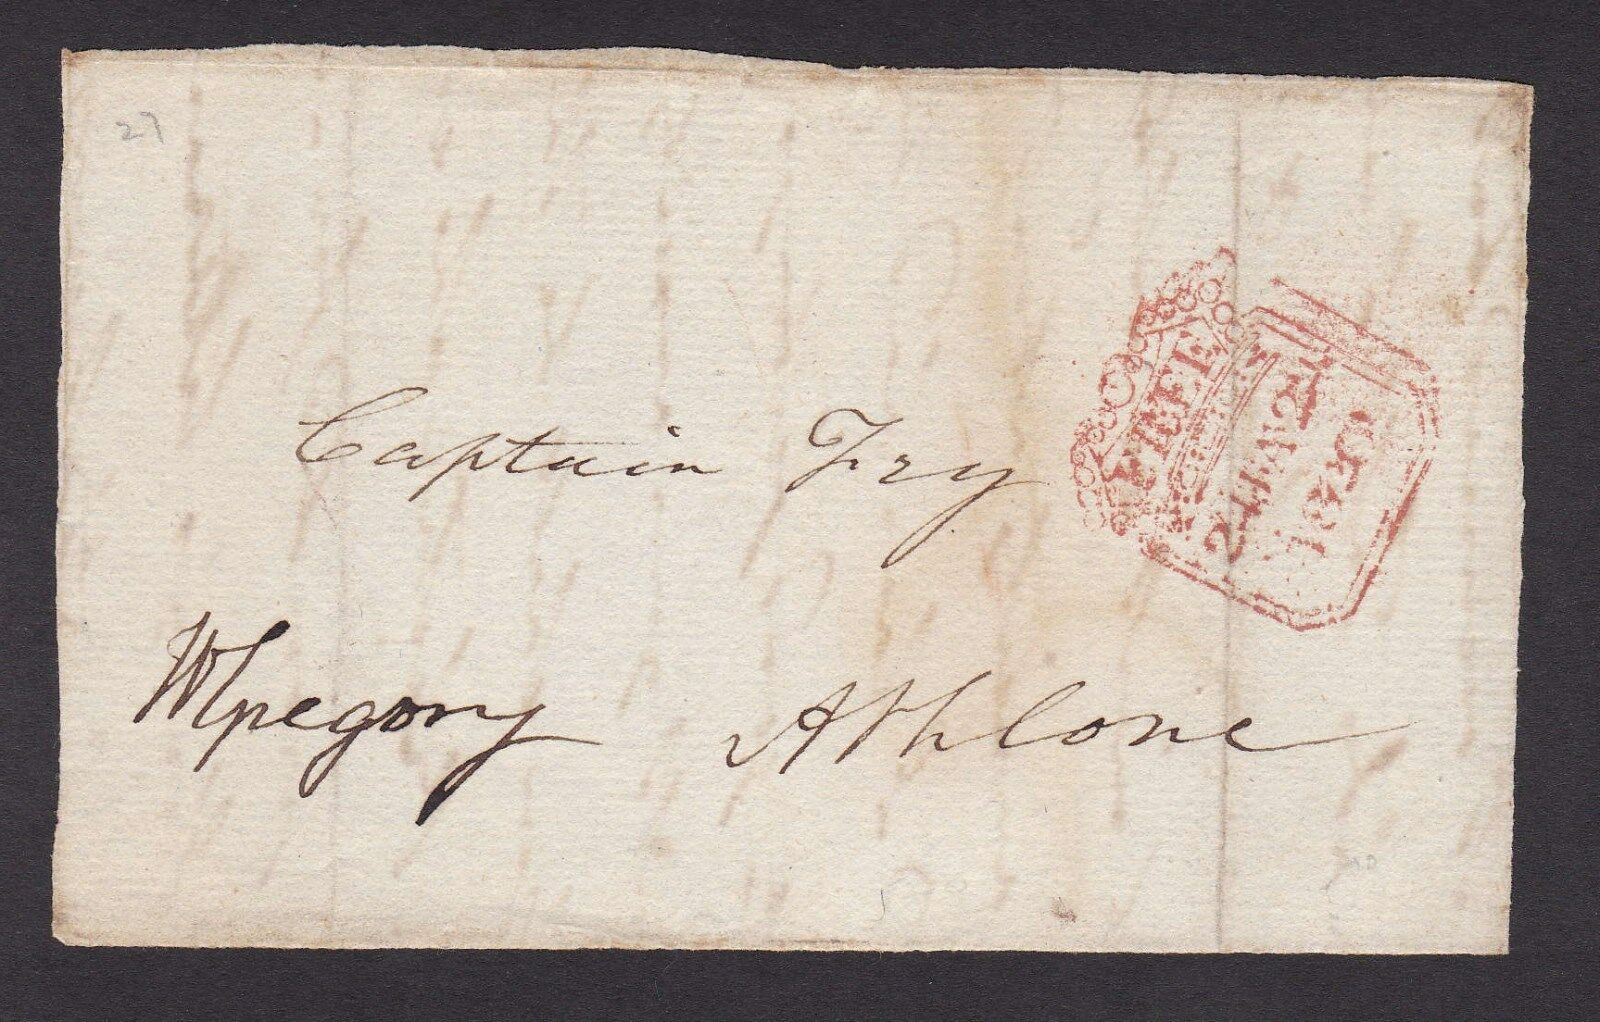 27
Captain Fry
FREE
2 MA 2
1820
WGregory
Athlone